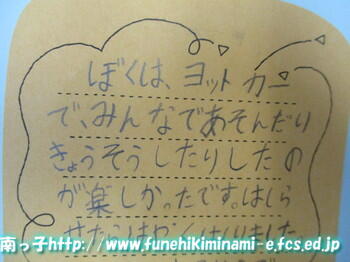 ぼくは、ヨットカー
で、みんなであそんだり
きょうそうしたりしたの
が楽しかったです。はしら
せたらはやくはしりました
南っ子http://www.funehikiminami-e.fcs.ed.jp